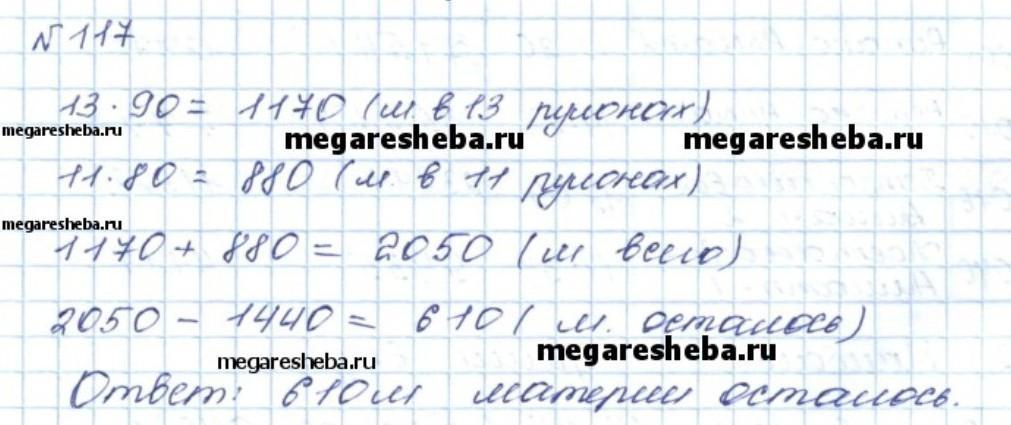 №117
13·90= 1170 (м. в 13 рулонах)
megaresheba.ru
megaresheba.ru megaresheba.ru
11·80= 880 (м. в 11 рулонах)
megaresheba.ru
1170+ 880= 2050 (м всего)
2050 - 1440= 610 ( м. осталось)
megaresheba.ru megaresheba.ru
Ответ: 610м материи осталось.